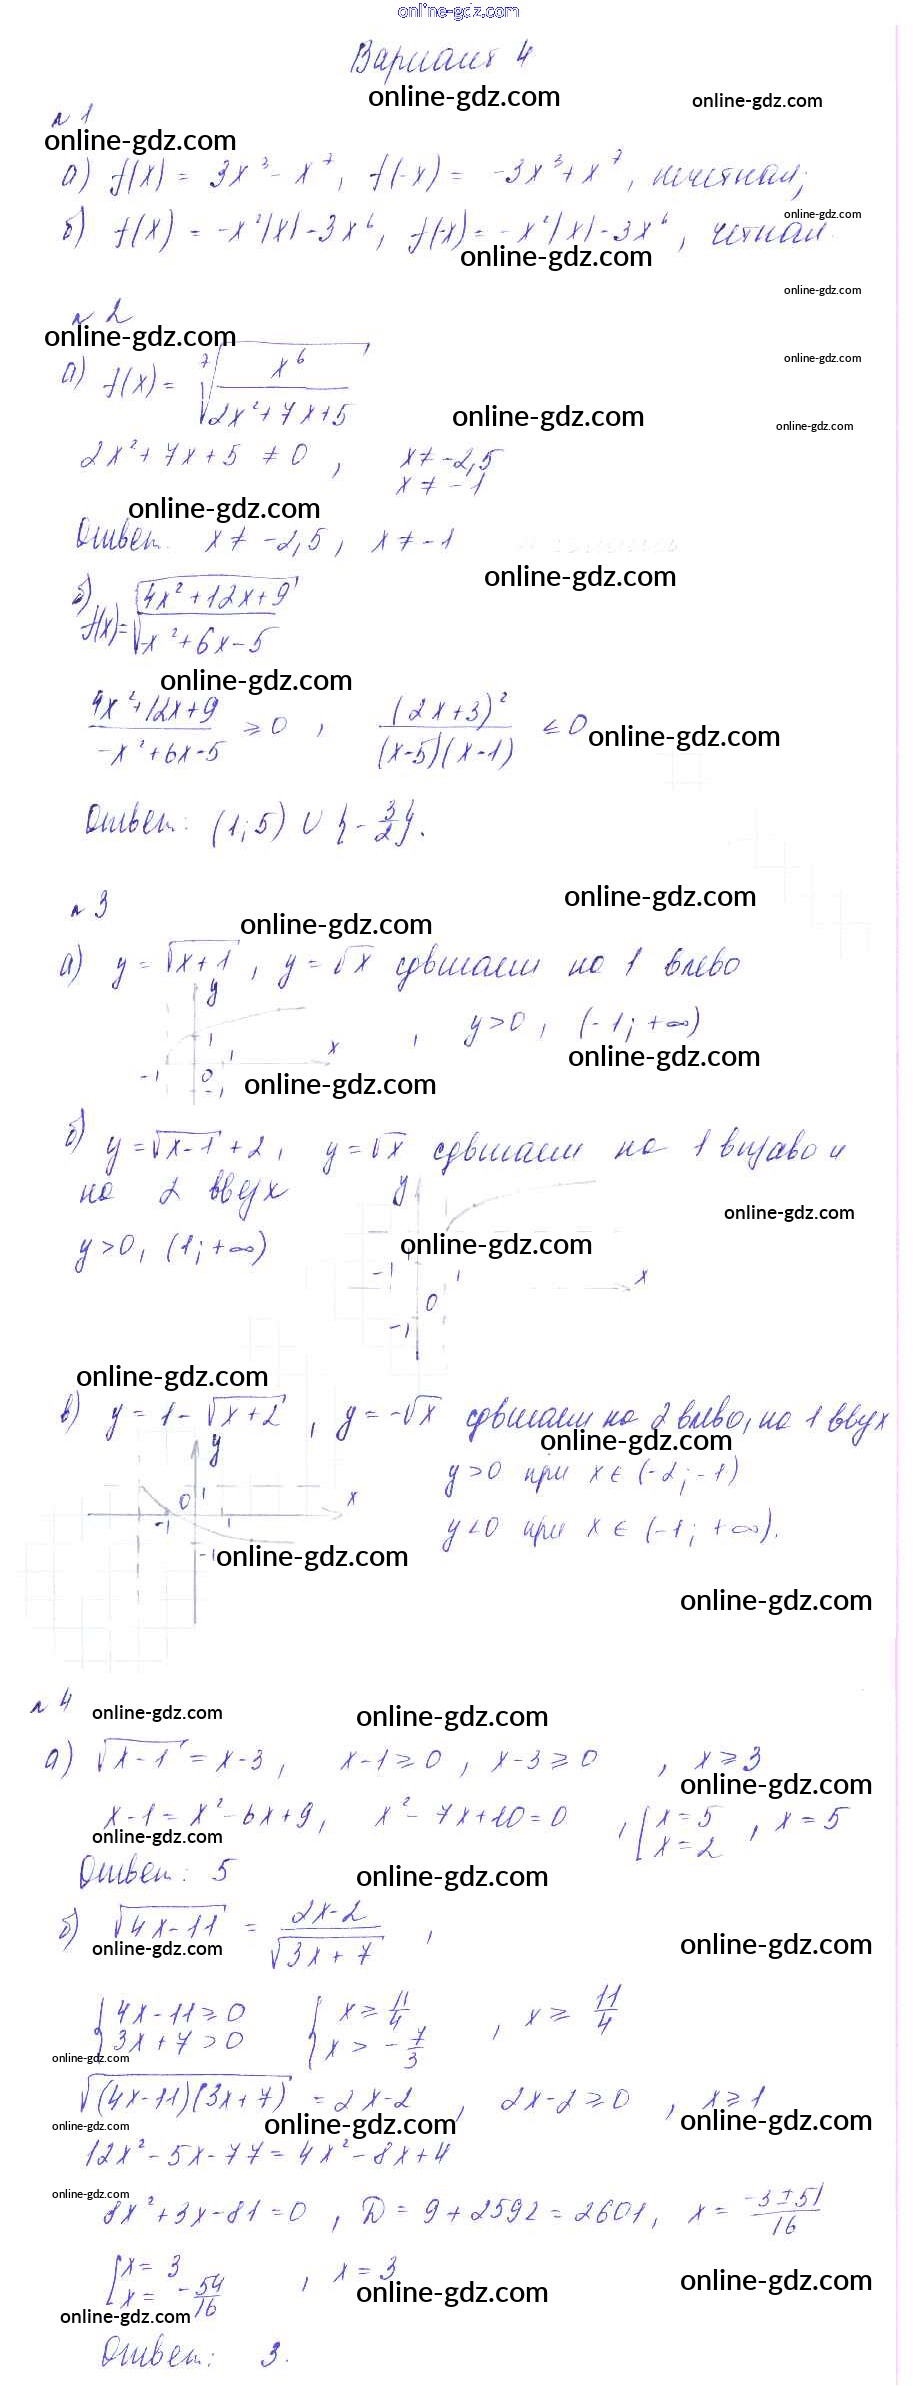 online-gdz.com
Вариант 4
online-gdz.com
online-gdz.com
№ 1
online-gdz.com
а) f(x) = 3x³ - x⁷, f(-x) = -3x³ + x⁷, нечетная;
online-gdz.com
б) f(x) = -x²|x| - 3x⁶, f(-x) = -x²|x| - 3x⁶, четная.
online-gdz.com
online-gdz.com
№ 2
online-gdz.com
online-gdz.com
а) f(x) = ⁷√(x⁶/(2x² + 7x + 5))
online-gdz.com
online-gdz.com
2x² + 7x + 5 ≠ 0, x ≠ -2,5
x ≠ -1
online-gdz.com
Ответ: x ≠ -2,5, x ≠ -1
online-gdz.com
б) f(x) = √((4x² + 12x + 9)/(-x² + 6x - 5))
online-gdz.com
(4x² + 12x + 9)/(-x² + 6x - 5) ≥ 0, (2x + 3)²/((x - 5)(x - 1)) ≤ 0
online-gdz.com
Ответ: (1; 5) ∪ {-3/2}.
online-gdz.com
№ 3
online-gdz.com
а) y = √(x + 1), y = √x сдвигаем на 1 влево
y
1
1
x
-1
0
-1
y > 0, (-1; +∞)
online-gdz.com
online-gdz.com
б) y = √(x - 1) + 2, y = √x сдвигаем на 1 вправо и
на 2 вверх
y
online-gdz.com
y > 0, (1; +∞)
online-gdz.com
-1
1
x
0
-1
online-gdz.com
в) y = 1 - √(x + 2), y = -√x сдвигаем на 2 влево, на 1 вверх
online-gdz.com
y
y > 0 при x ∈ (-2; -1)
0
1
x
-1
1
y < 0 при x ∈ (-1; +∞).
-1
online-gdz.com
online-gdz.com
№ 4
online-gdz.com
online-gdz.com
а) √(x - 1) = x - 3, x - 1 ≥ 0, x - 3 ≥ 0, x ≥ 3
online-gdz.com
x - 1 = x² - 6x + 9, x² - 7x + 10 = 0, [x = 5, x = 5
x = 2
online-gdz.com
Ответ: 5
online-gdz.com
б) √(4x - 11) = (2x - 2)/√(3x + 7),
online-gdz.com
online-gdz.com
{4x - 11 ≥ 0 {x ≥ 11/4, x ≥ 11/4
3x + 7 > 0 x > -7/3
online-gdz.com
√((4x - 11)(3x + 7)) = 2x - 2, 2x - 2 ≥ 0, x ≥ 1
online-gdz.com
online-gdz.com
online-gdz.com
12x² - 5x - 77 = 4x² - 8x + 4
online-gdz.com
8x² + 3x - 81 = 0, D = 9 + 2592 = 2601, x = (-3 ± 51)/16
[x = 3, x = 3
x = -54/16
online-gdz.com
online-gdz.com
online-gdz.com
Ответ: 3.